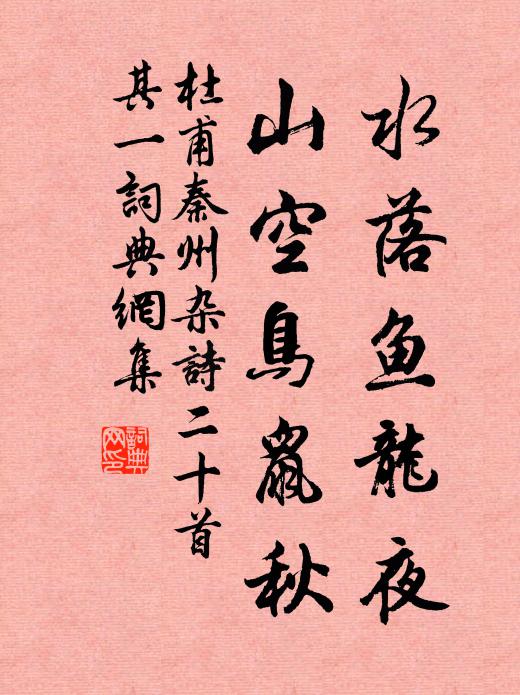 水落魚龍夜
山空鳥鼠秋
杜甫秦州杂詩二十首
其一詞典網集
詞典
网印